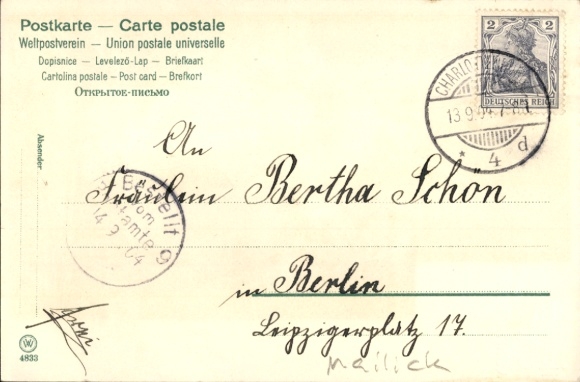 Postkarte — Carte postale
Weltpostverein — Union postale universelle
Dopisnice — Levelező-Lap — Briefkaart
Cartolina postale — Post card — Brefkort
Открытое-письмо
2 2
DEUTSCHES REICH
13.9.04
* 4 d
Absender
An
Fräulein Bertha Schön
Bestellt
vom
14 9 04
in Berlin
Leipzigerplatz 17.
Mailick
4833